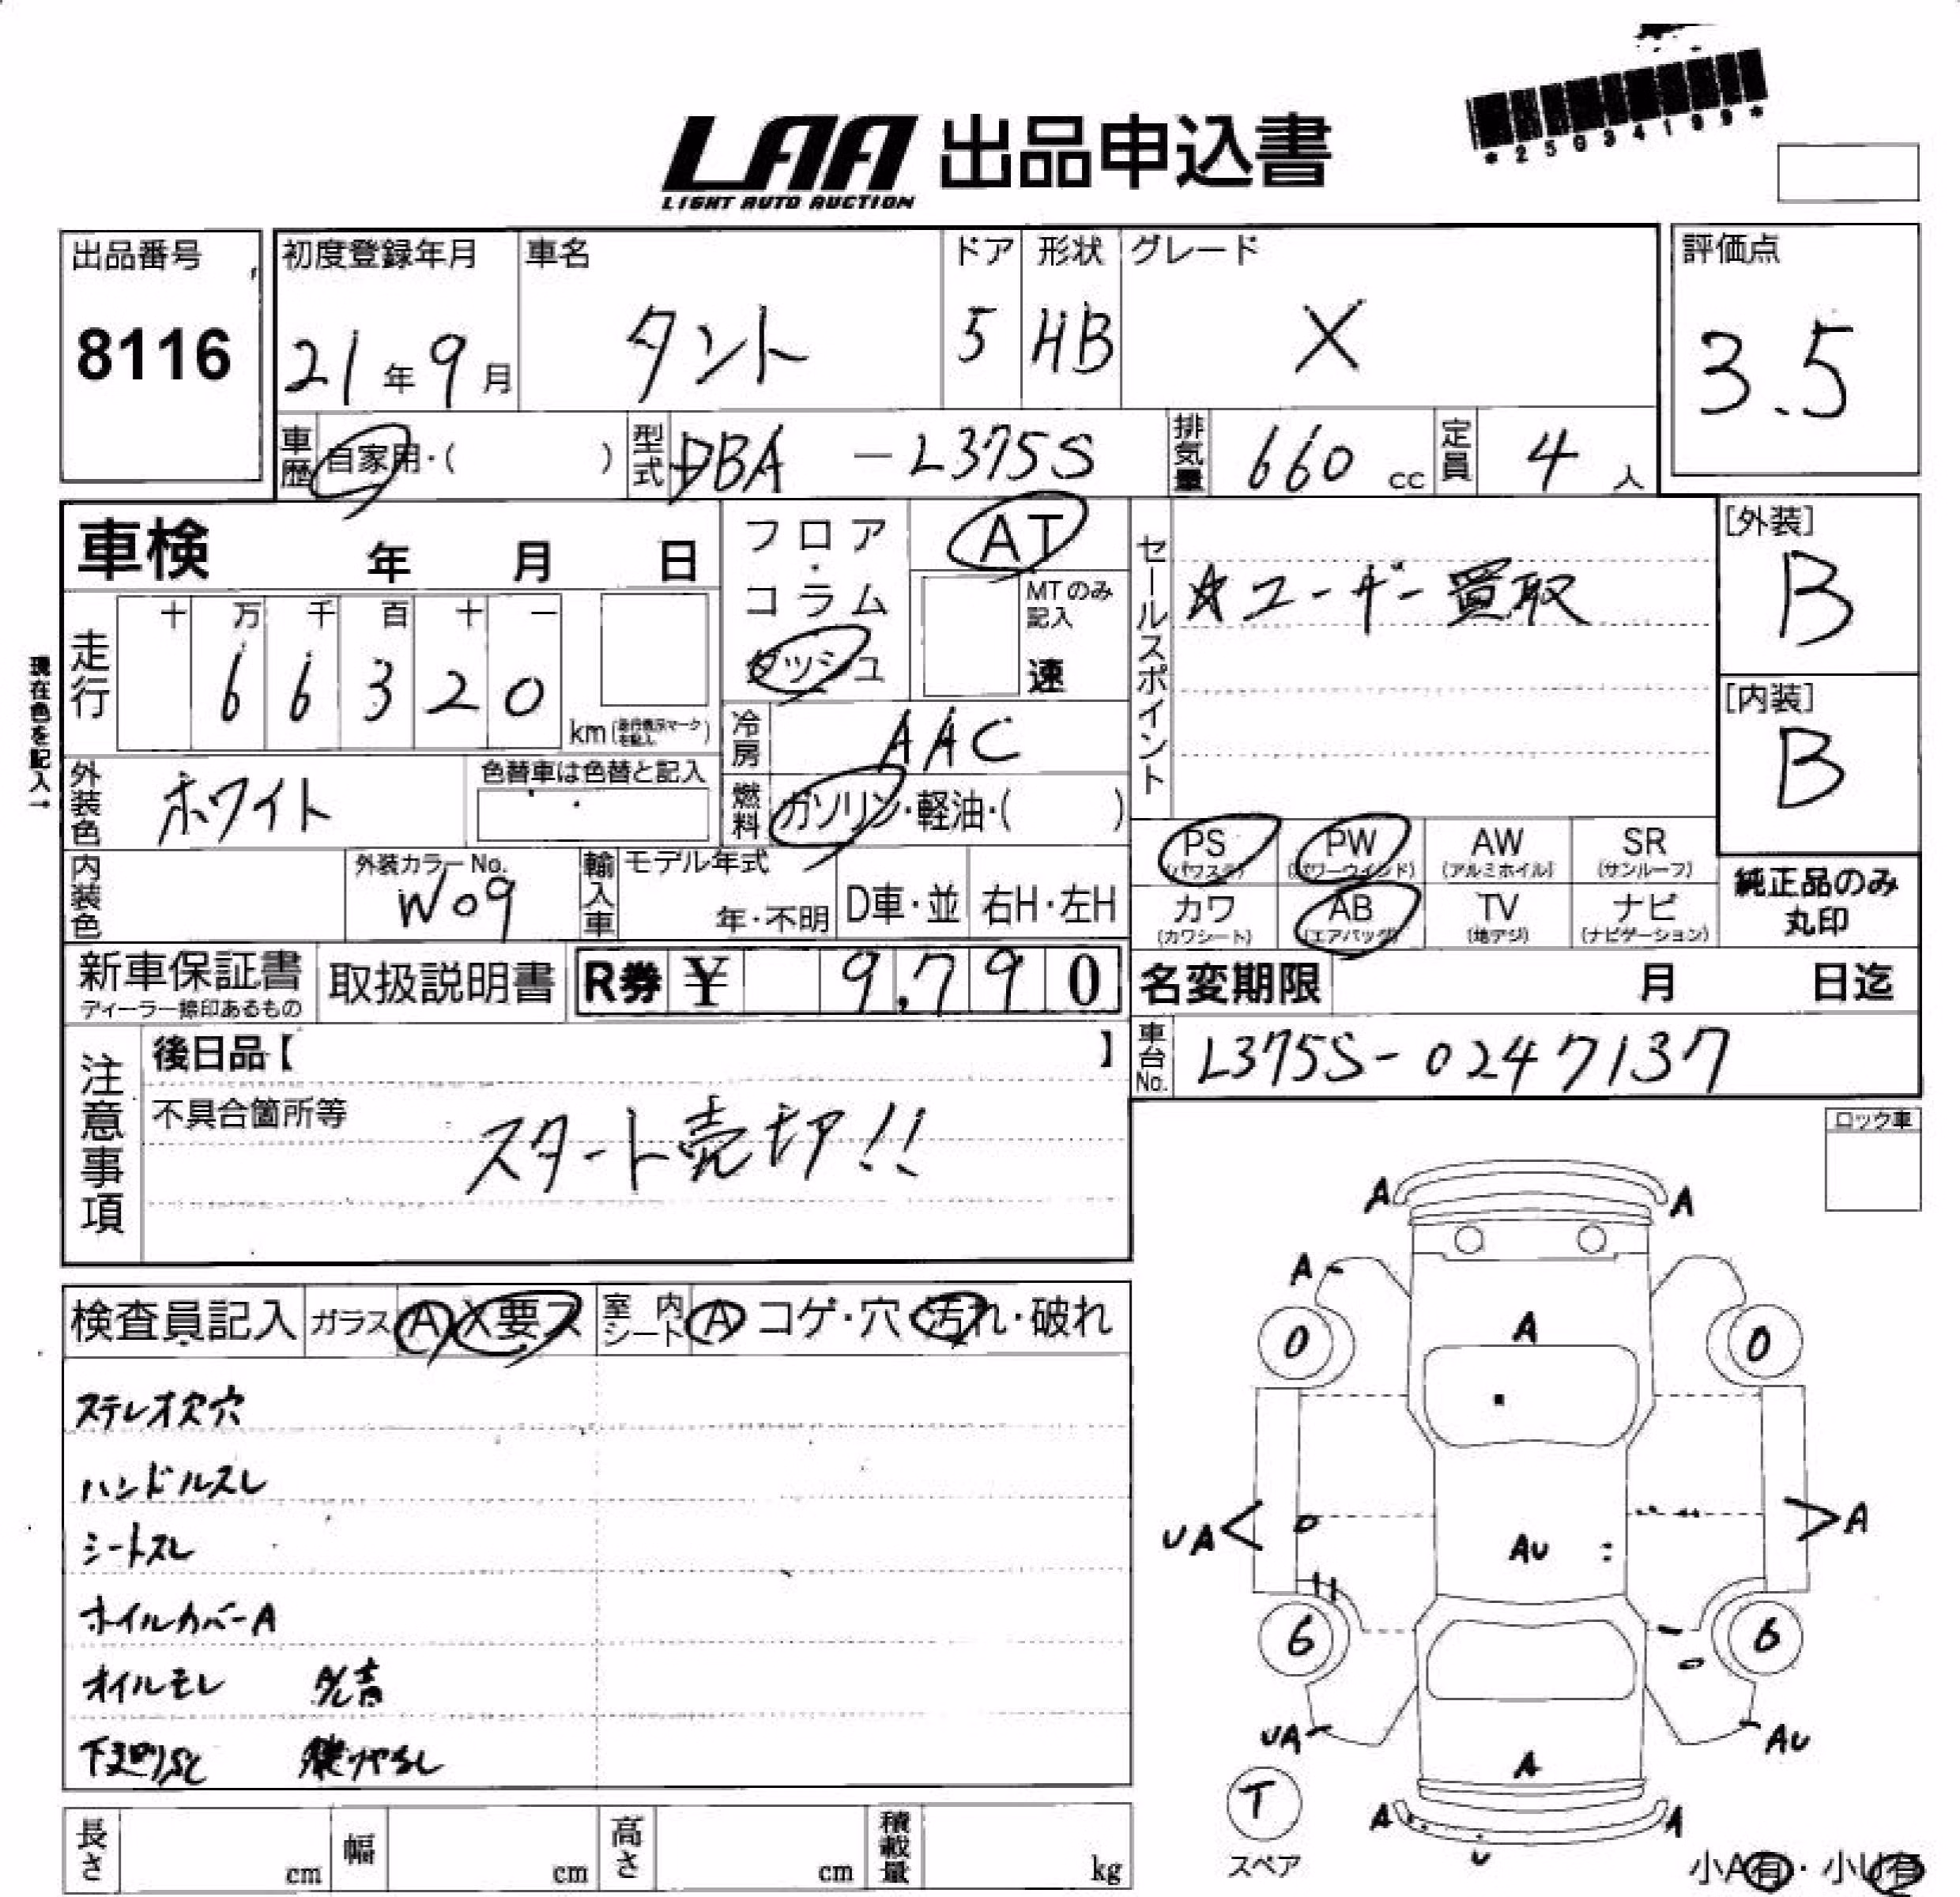 LAA 出品申込書
LIGHT AUTO AUCTION
*25034199*
出品番号 初度登録年月 車名 ドア 形状 グレード 評価点
8116 21年9月 タント 5 HB X 3.5
車歴 自家用・( ) 型式 DBA - L375S 排気量 660 cc 定員 4 人
車検 年 月 日 フロア・コラム ダッシュ AT
MTのみ記入 速
セールスポイント
☆ユーザー買取
[外装]
B
[内装]
B
現在色を記入→
走行 十 万 千 百 十 一
6 6 3 2 0 km (走行表示マークを記入)
冷房 AAC
外装色 ホワイト 色替車は色替と記入
燃料 ガソリン・軽油・( )
PS (パワステ) PW (パワーウインド) AW (アルミホイル) SR (サンルーフ)
カワ (カワシート) AB (エアバッグ) TV (地デジ) ナビ (ナビゲーション)
純正品のみ
丸印
内装色 外装カラーNo. W09 輸入車 モデル年式 年・不明 D車・並 右H・左H
新車保証書 ディーラー捺印あるもの 取扱説明書 R券 ¥ 9,790
名変期限 月 日迄
車台No. L375S-0247137
注意事項
後日品【 】
不具合箇所等
スタート売切!!
ロック車
検査員記入 ガラス A X要ス 室内シート A コゲ・穴 汚れ・破れ
ステレオ欠穴
ハンドルスレ
シートスレ
ホイルカバーA
オイルモレ
下廻りS
A A
A
0 A 0
UA AU A
6 6
UA AU
A
T
スペア
A A
U
小A有・小U有
長さ cm 幅 cm 高さ cm 積載量 kg